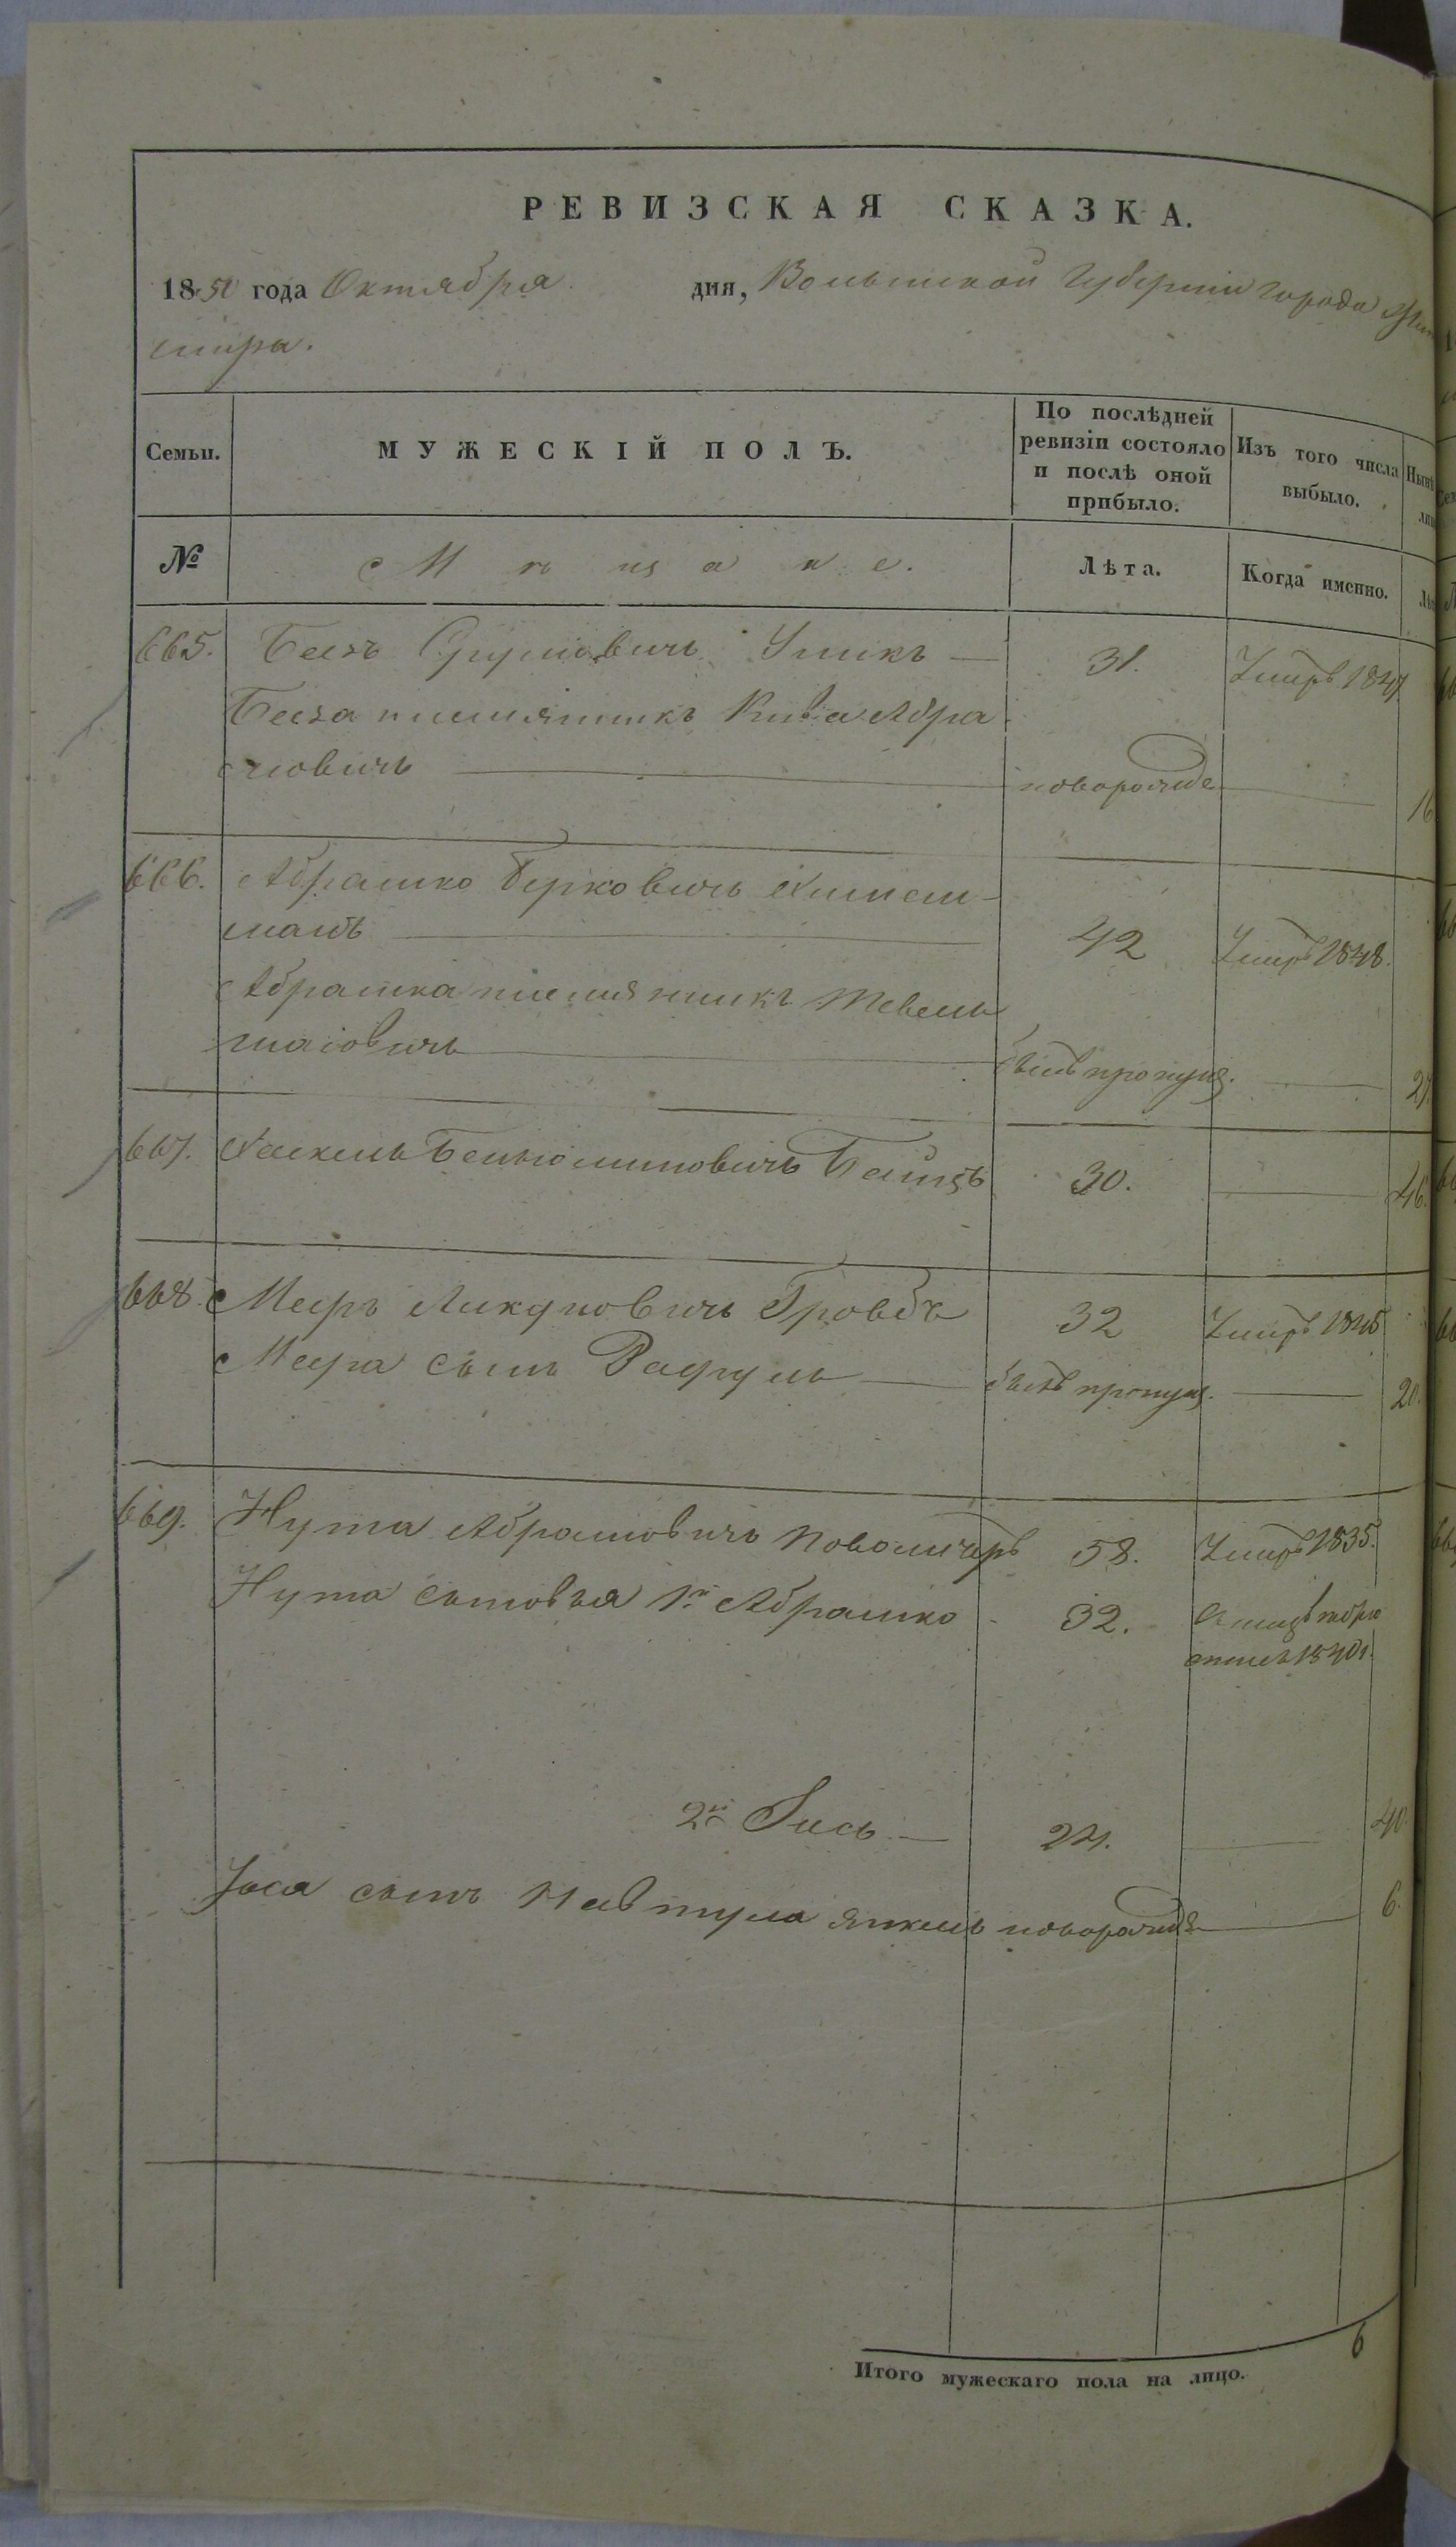 РЕВИЗСКАЯ СКАЗКА.
1850 года Октября дня, Волынской Губернiи города Жит
мира.
Семьи.
МУЖЕСКІЙ ПОЛЪ.
По послѣдней ревизіи состояло и послѣ оной прибыло.
Изъ того числа выбыло.
№
Мѣщане.
Лѣта.
Когда именно.
665. Беръ Сруловичь 31. Умеръ 1847
племянникъ Кива Абра
мовичь новорожде 16
666. Абрашко Берковичь
манъ 42 Умеръ 1848.
Абрашка племянникъ Тевель
былъ пропущ. 27.
667. Хаскель Беньюминовичь 30. 46.
668. Мееръ Гровбъ 32 Умеръ 1845
Меера сынъ Рафуль былъ пропущ. 20.
669. Нута Абрамовичь Поволичеръ 58. Умеръ 1835.
Нута сыновья 1й Абрашко 32.
1840.
2й Iось 24. 40.
Iоса сынъ Навтула Янкель новорожде 6.
Итого мужескаго пола на лицо. 6